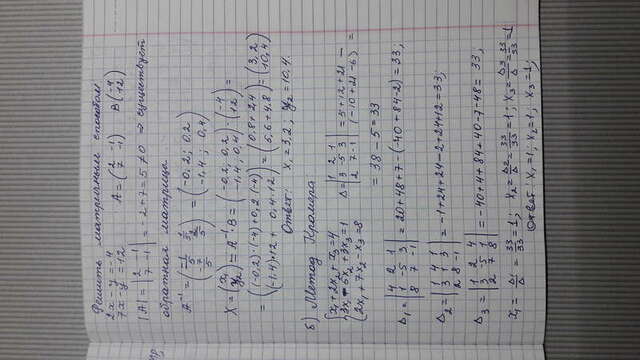 Решить матричным способом
2x - y = -4
7x - y = 12
A = (2 -1
7 -1)
B (-4
12)
|A| = |2 -1
7 -1| = -2+7 = 5 ≠ 0 ⇒ существует
обратная матрица
A⁻¹ = (-1/5 1/5
-7/5 2/5) = (-0,2; 0,2
-1,4; 0,4)
X = (x₁
y₂) = A⁻¹·B = (-0,2; 0,2
-1,4; 0,4)·(-4
12) =
= ((-0,2)·(-4)+0,2·(-4)
(-1,4)·12 + 0,4·12) = (0,8+2,4
5,6+4,8) = (3,2
10,4)
Ответ: x₁ = 3,2; y₂ = 10,4.
б) Метод Крамера:
x₁+2x₂+x₃=4
3x₁-5x₂+3x₃=1
2x₁+7x₂-x₃=8
Δ = |1 2 1
3 -5 3
2 7 -1| = 5+12+21 -
(-10+21-6) =
= 38-5=33
Δ₁ = |4 2 1
1 -5 3
8 7 -1| = 20+48+7-(-40+84-2) = 33;
Δ₂ = |1 4 1
3 1 3
2 8 -1| = -1+24+24-2-24+12=33;
Δ₃ = |1 2 4
3 -5 1
2 7 8| = -40+4+84+40-7-48= 33;
x₁ = Δ₁/Δ = 33/33 = 1; x₂ = Δ₂/Δ = 33/33 = 1; x₃ = Δ₃/Δ = 33/33 = 1
Ответ: x₁=1; x₂=1; x₃=1;